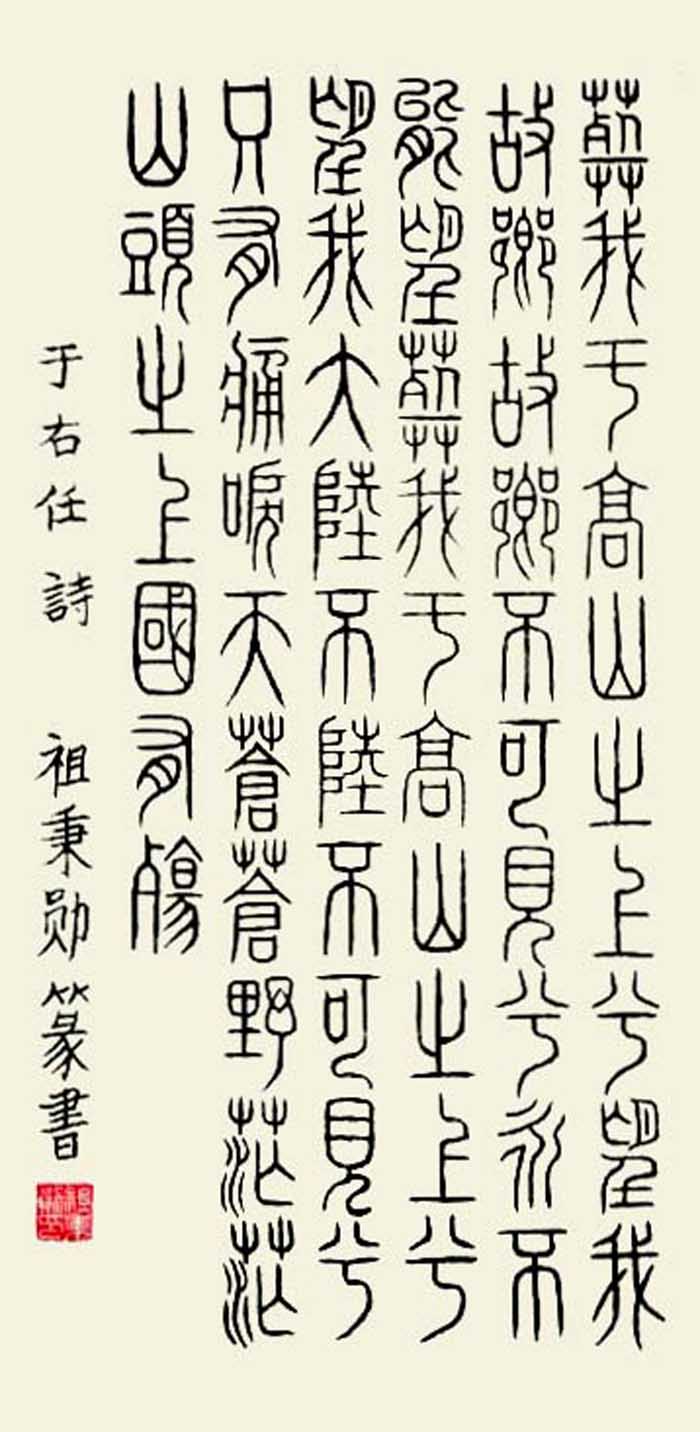 葬我于高山之上兮望我
故鄉故鄉不可見兮永不
能望葬我于高山之上兮
望我大陸不陸不可見兮
只有痛唳天蒼蒼野茫茫
山頭之上國有殤
于右任詩 祖秉勛篆書